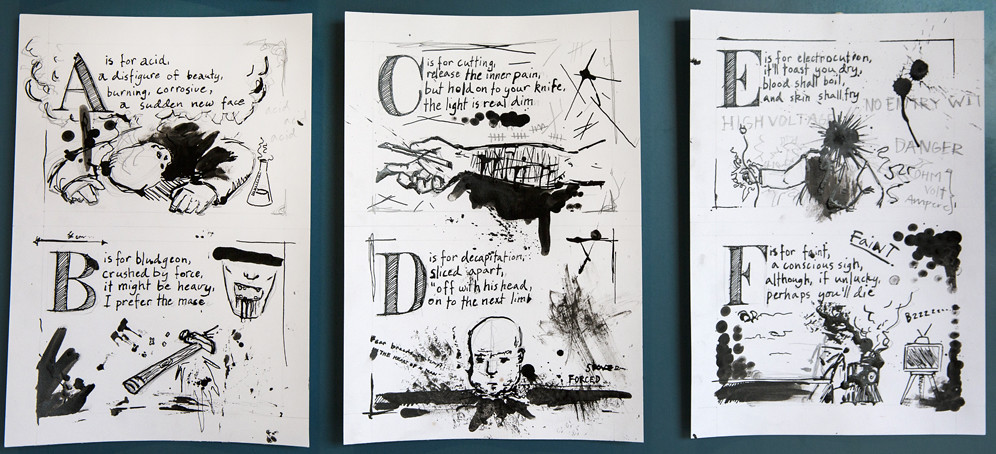 A is for acid,
a disfigure of beauty,
burning, corrosive,
a sudden new face
acid
B is for bludgeon,
crushed by force,
it might be heavy,
I prefer the mace
C is for cutting,
release the inner pain,
but hold on to your knife,
the light is real dim
D is for decapitation,
sliced apart,
"off with his head,
on to the next limb
THE
FORCED
E is for electrocution,
it'll toast you dry,
blood shall boil,
and skin shall fry
NO ENTRY WIT
HIGH VOLTAGE
DANGER
OHM
Volt
Ampere
F is for faint,
a conscious sigh,
although, if unlucky,
perhaps you'll die
FAINT
BZZZZZ...